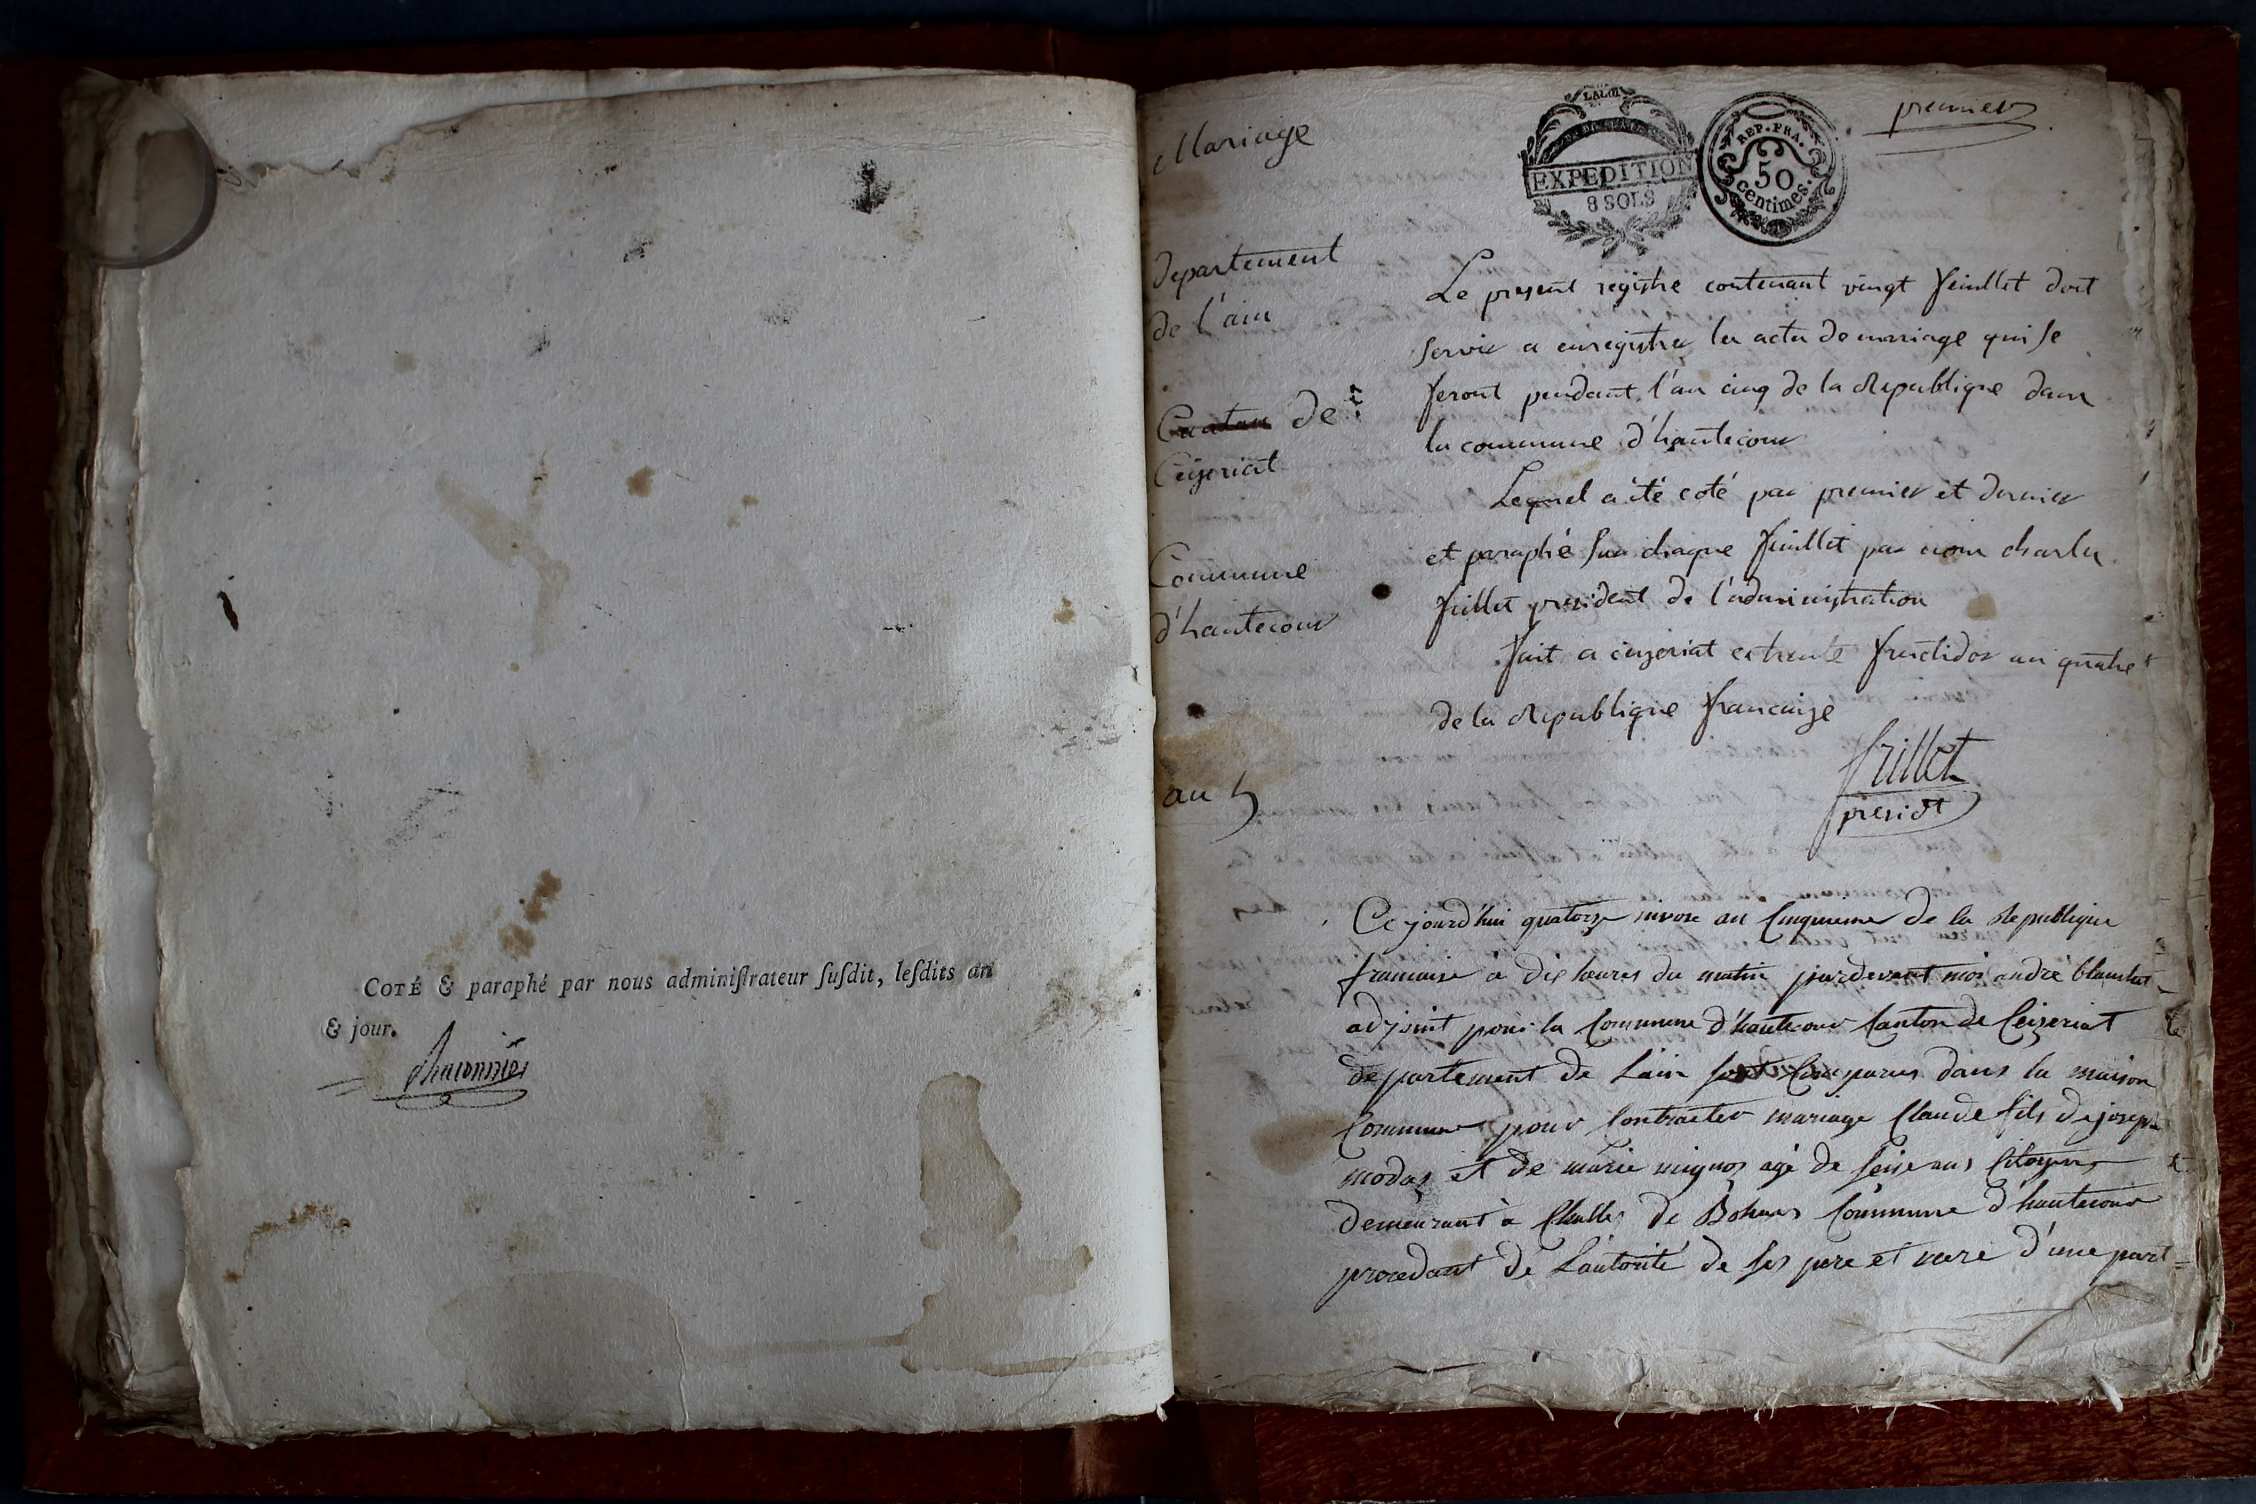 COTÉ & paraphé par nous adminiſtrateur ſuſdit, leſdits an
& jour.
Mariage
departement
de l'ain
Canton de
Ceizeriat
Commune
d'hautecour
an 5
LA LOI
EXPEDITION
8 SOLS
REP. FRA.
50
centimes.
premier
Le present registre contenant vingt feuillet doit
servir a enregistrer les actes de mariage qui se
feront pendant l'an cinq de la Republique dans
la commune d'hautecour
Lequel a été coté par premier et dernier
et paraphé sur chaque feuillet par nous charles
fuillet president de l'administration
fait a ceizeriat ce trente fructidor an quatre
de la Republique francaise
fuillet
presidt
Ce jourd'hui quatorze nivose an Cinquieme de la Republique
francaise à dix heures du matin pardevant moi andré
adjoint pour la Commune d'hautecour Canton de Ceizeriat
departement de Lain sont Comparus dans la maison
Commune pour Contracter mariage Claude fils de joseph
modas et de marie mignot agé de seise ans Citoyen
demeurant à Challes de Bohans Commune d'hautecour
procedant de L'autorité de ses pere et mere d'une part